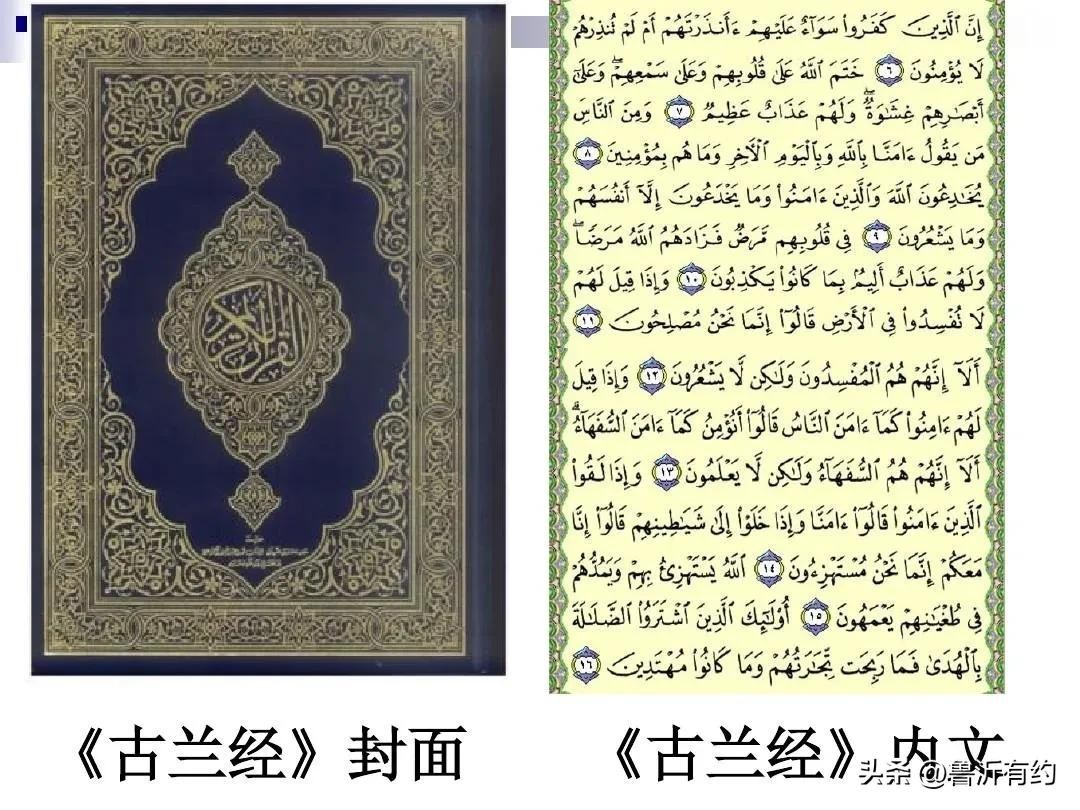 القرآن الكريم
إِنَّ ٱلَّذِينَ كَفَرُوا۟ سَوَآءٌ عَلَيْهِمْ ءَأَنذَرْتَهُمْ أَمْ لَمْ تُنذِرْهُمْ
لَا يُؤْمِنُونَ ٦ خَتَمَ ٱللَّهُ عَلَىٰ قُلُوبِهِمْ وَعَلَىٰ سَمْعِهِمْ ۖ وَعَلَىٰٓ
أَبْصَٰرِهِمْ غِشَٰوَةٌ ۖ وَلَهُمْ عَذَابٌ عَظِيمٌ ٧ وَمِنَ ٱلنَّاسِ
مَن يَقُولُ ءَامَنَّا بِٱللَّهِ وَبِٱلْيَوْمِ ٱلْأَخِرِ وَمَا هُم بِمُؤْمِنِينَ ٨
يُخَٰدِعُونَ ٱللَّهَ وَٱلَّذِينَ ءَامَنُوا۟ وَمَا يَخْدَعُونَ إِلَّآ أَنفُسَهُمْ
وَمَا يَشْعُرُونَ ٩ فِى قُلُوبِهِم مَّرَضٌ فَزَادَهُمُ ٱللَّهُ مَرَضًا ۖ
وَلَهُمْ عَذَابٌ أَلِيمٌۢ بِمَا كَانُوا۟ يَكْذِبُونَ ١٠ وَإِذَا قِيلَ لَهُمْ
لَا تُفْسِدُوا۟ فِى ٱلْأَرْضِ قَالُوٓا۟ إِنَّمَا نَحْنُ مُصْلِحُونَ ١١
أَلَآ إِنَّهُمْ هُمُ ٱلْمُفْسِدُونَ وَلَٰكِن لَّا يَشْعُرُونَ ١٢ وَإِذَا قِيلَ
لَهُمْ ءَامِنُوا۟ كَمَآ ءَامَنَ ٱلنَّاسُ قَالُوٓا۟ أَنُؤْمِنُ كَمَآ ءَامَنَ ٱلسُّفَهَآءُ ۗ
أَلَآ إِنَّهُمْ هُمُ ٱلسُّفَهَآءُ وَلَٰكِن لَّا يَعْلَمُونَ ١٣ وَإِذَا لَقُوا۟
ٱلَّذِينَ ءَامَنُوا۟ قَالُوٓا۟ ءَامَنَّا وَإِذَا خَلَوْا۟ إِلَىٰ شَيَٰطِينِهِمْ قَالُوٓا۟ إِنَّا
مَعَكُمْ إِنَّمَا نَحْنُ مُسْتَهْزِءُونَ ١٤ ٱللَّهُ يَسْتَهْزِئُ بِهِمْ وَيَمُدُّهُمْ
فِى طُغْيَٰنِهِمْ يَعْمَهُونَ ١٥ أُو۟لَٰٓئِكَ ٱلَّذِينَ ٱشْتَرَوُا۟ ٱلضَّلَٰلَةَ
بِٱلْهُدَىٰ فَمَا رَبِحَت تِّجَٰرَتُهُمْ وَمَا كَانُوا۟ مُهْتَدِينَ ١٦
《古兰经》封面
《古兰经》内文
头条 @鲁沂有约